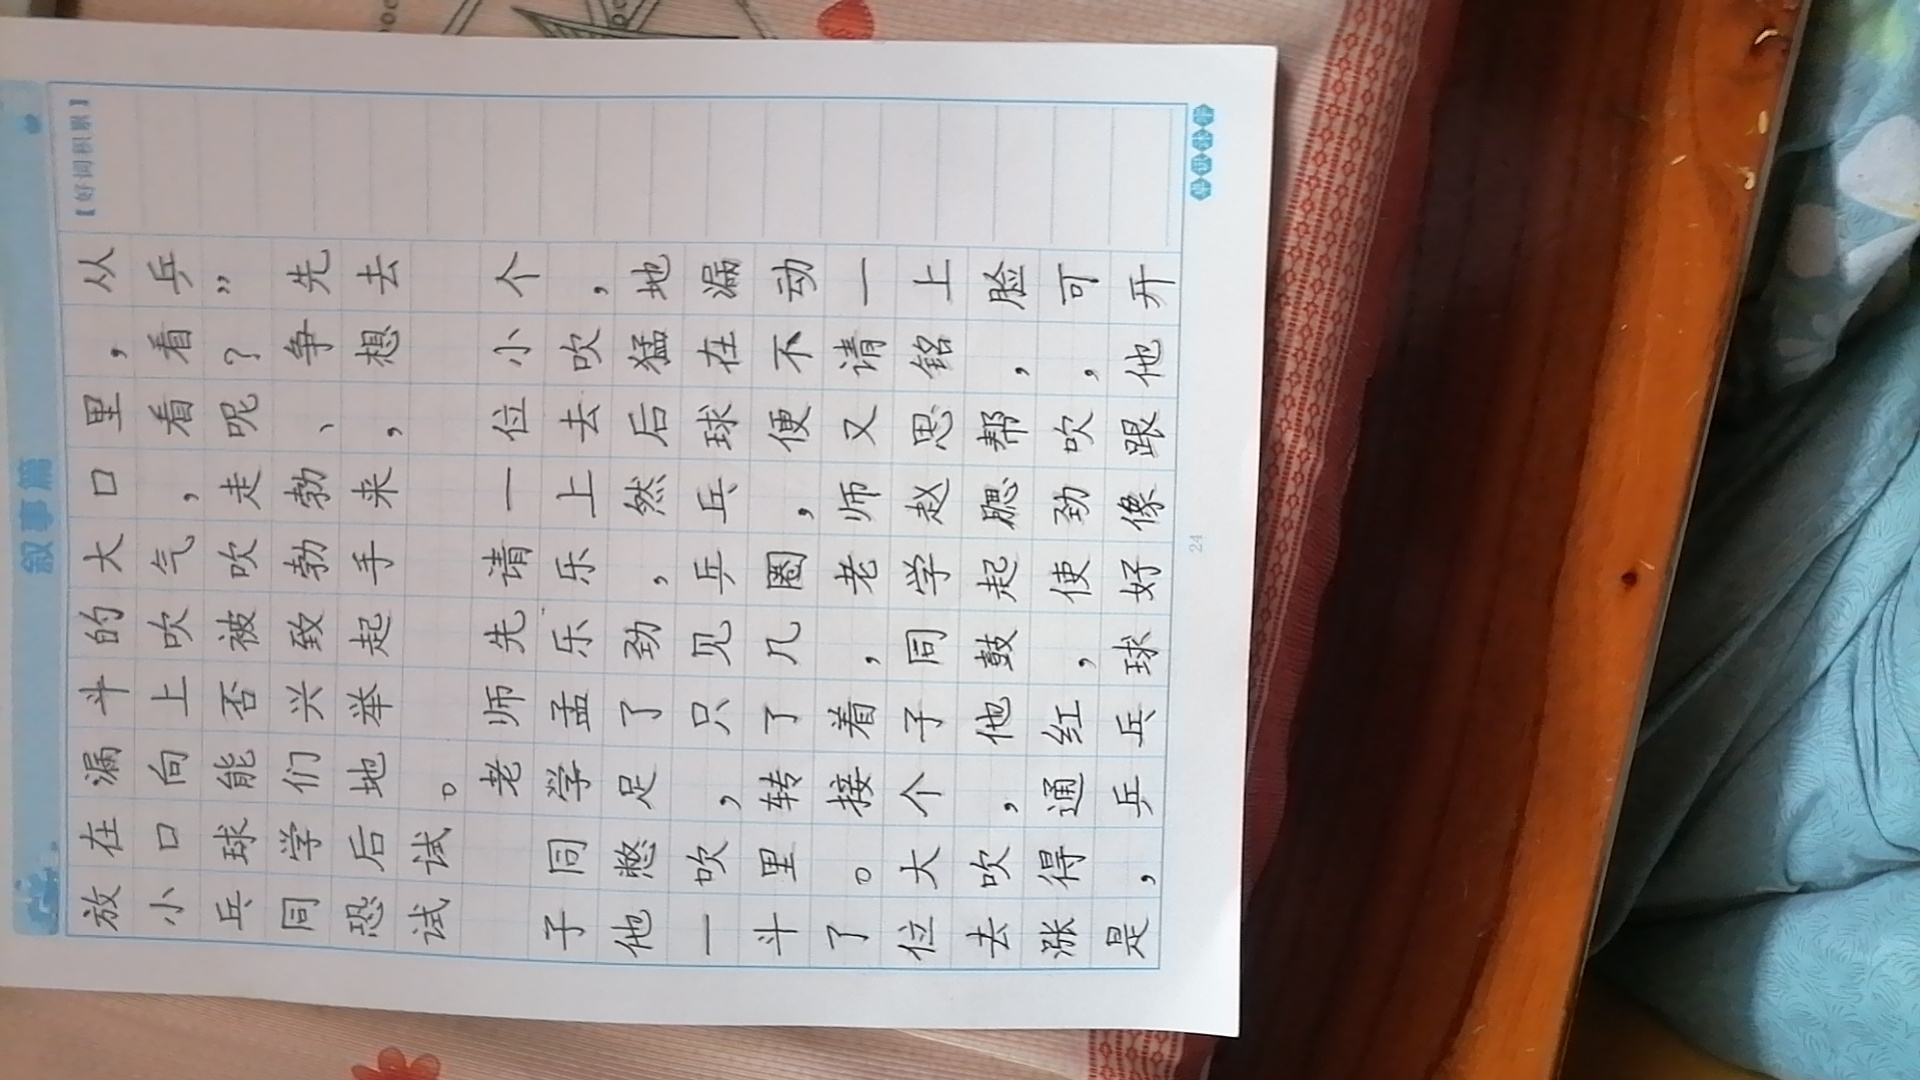 叙事篇
【好词积累】
放在漏斗的大口里，从
小口向上吹气，看看乒
乓球能否被吹走呢？”
同学们兴致勃勃、争先
恐后地举起手来，想去
试试。
老师先请一位小个
子同学孟乐乐上去吹，
他憋足了劲，然后猛地
一吹，只见乒乓球在漏
斗里转了几圈，便不动
了。接着，老师又请一
位大个子同学赵思铭上
去吹，他鼓起腮帮，脸
涨得通红，使劲吹，可
是，乒乓球好像跟他开
24